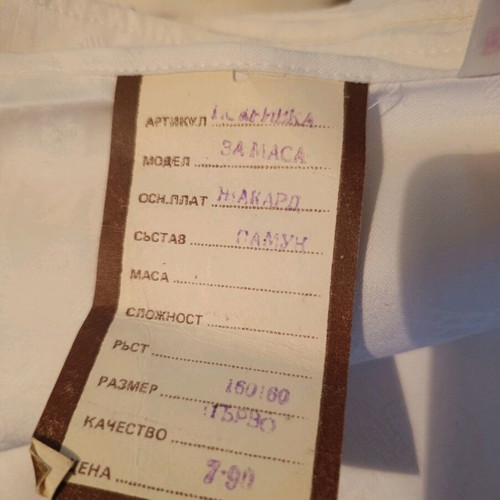 АРТИКУЛ
МОДЕЛ ЗА МАСА
ОСН.ПЛАТ ЖАКАРД
СЬСТАВ ПАМУК
МАСА
СЛОЖНОСТ
РЬСТ
РАЗМЕР 160/60
КАЧЕСТВО ПЪРВО
ЦЕНА 7.90